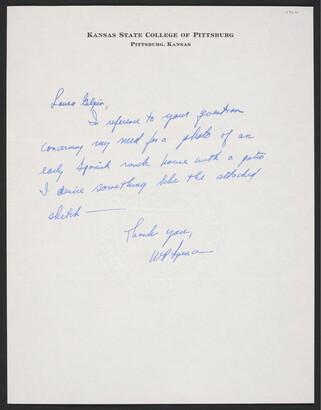 KANSAS STATE COLLEGE OF PITTSBURG
PITTSBURG, KANSAS
Laura Gilpin,
In reference to your question
concerning my need for a photo of an
early Spanish ranch house with a patio
I desire something like the attached
sketch —
Thank you,
WP Spence